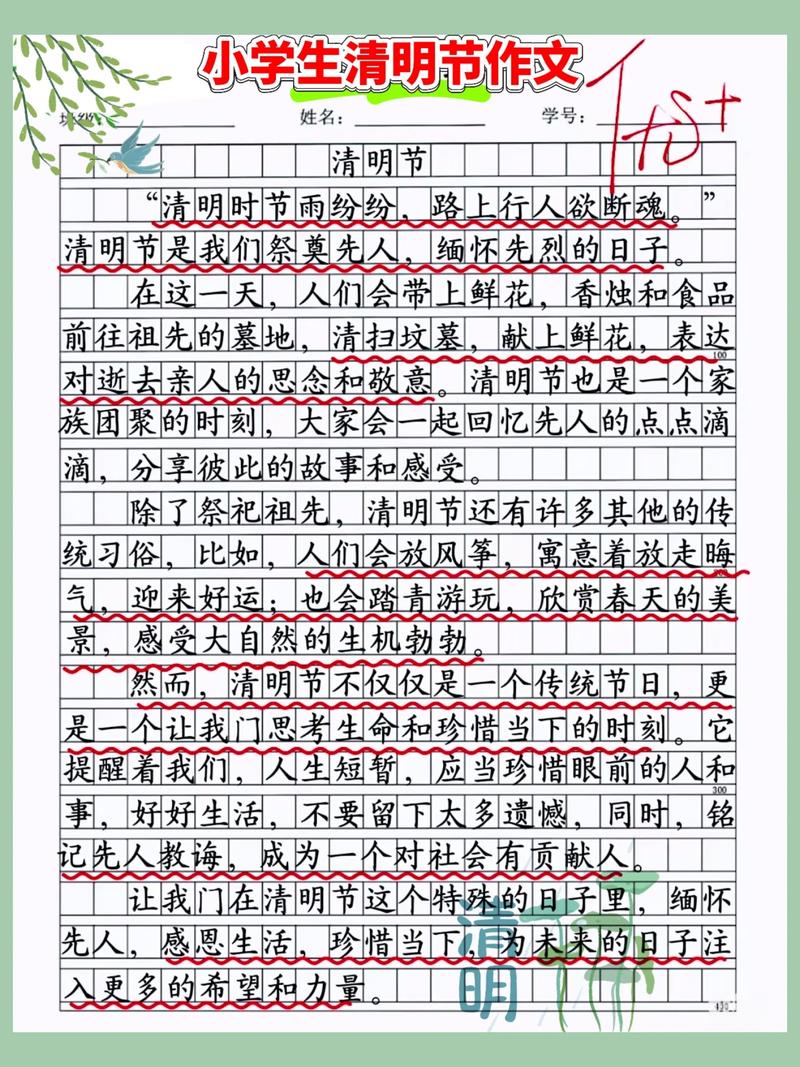 小学生清明节作文
班级：
姓名：
学号：
优+
清明节
“清明时节雨纷纷，路上行人欲断魂。”
清明节是我们祭奠先人，缅怀先烈的日子。
在这一天，人们会带上鲜花，香烛和食品
前往祖先的墓地，清扫坟墓，献上鲜花，表达
100
对逝去亲人的思念和敬意。清明节也是一个家
族团聚的时刻，大家会一起回忆先人的点点滴
滴，分享彼此的故事和感受。
除了祭祀祖先，清明节还有许多其他的传
统习俗，比如，人们会放风筝，寓意着放走晦
气，迎来好运；也会踏青游玩，欣赏春天的美
景，感受大自然的生机勃勃。
然而，清明节不仅仅是一个传统节日，更
是一个让我门思考生命和珍惜当下的时刻。它
提醒着我们，人生短暂，应当珍惜眼前的人和
300
事，好好生活，不要留下太多遗憾，同时，铭
记先人教诲，成为一个对社会有贡献人。
让我门在清明节这个特殊的日子里，缅怀
先人，感恩生活，珍惜当下，为未来的日子注
入更多的希望和力量。
清明
400